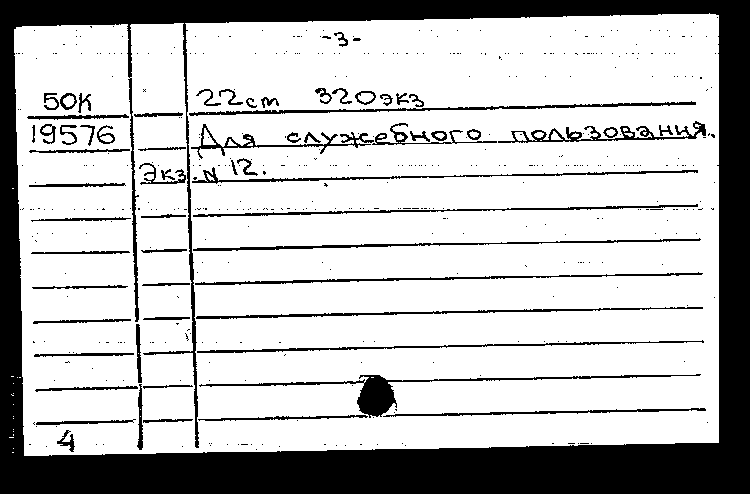 -3-
50К 22ст 320экз
19576 Для служебного пользования.
Экз. N 12.
4